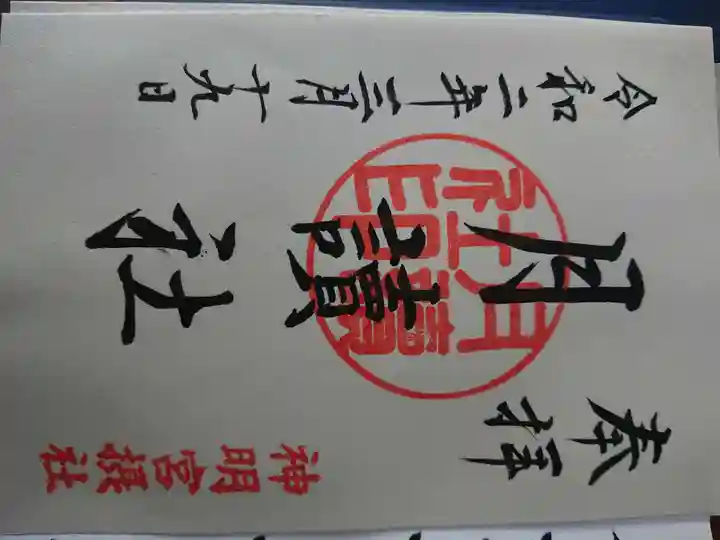 奉拝
神明宮摂社
月讀社
月讀
社印
令和二年三月十九日